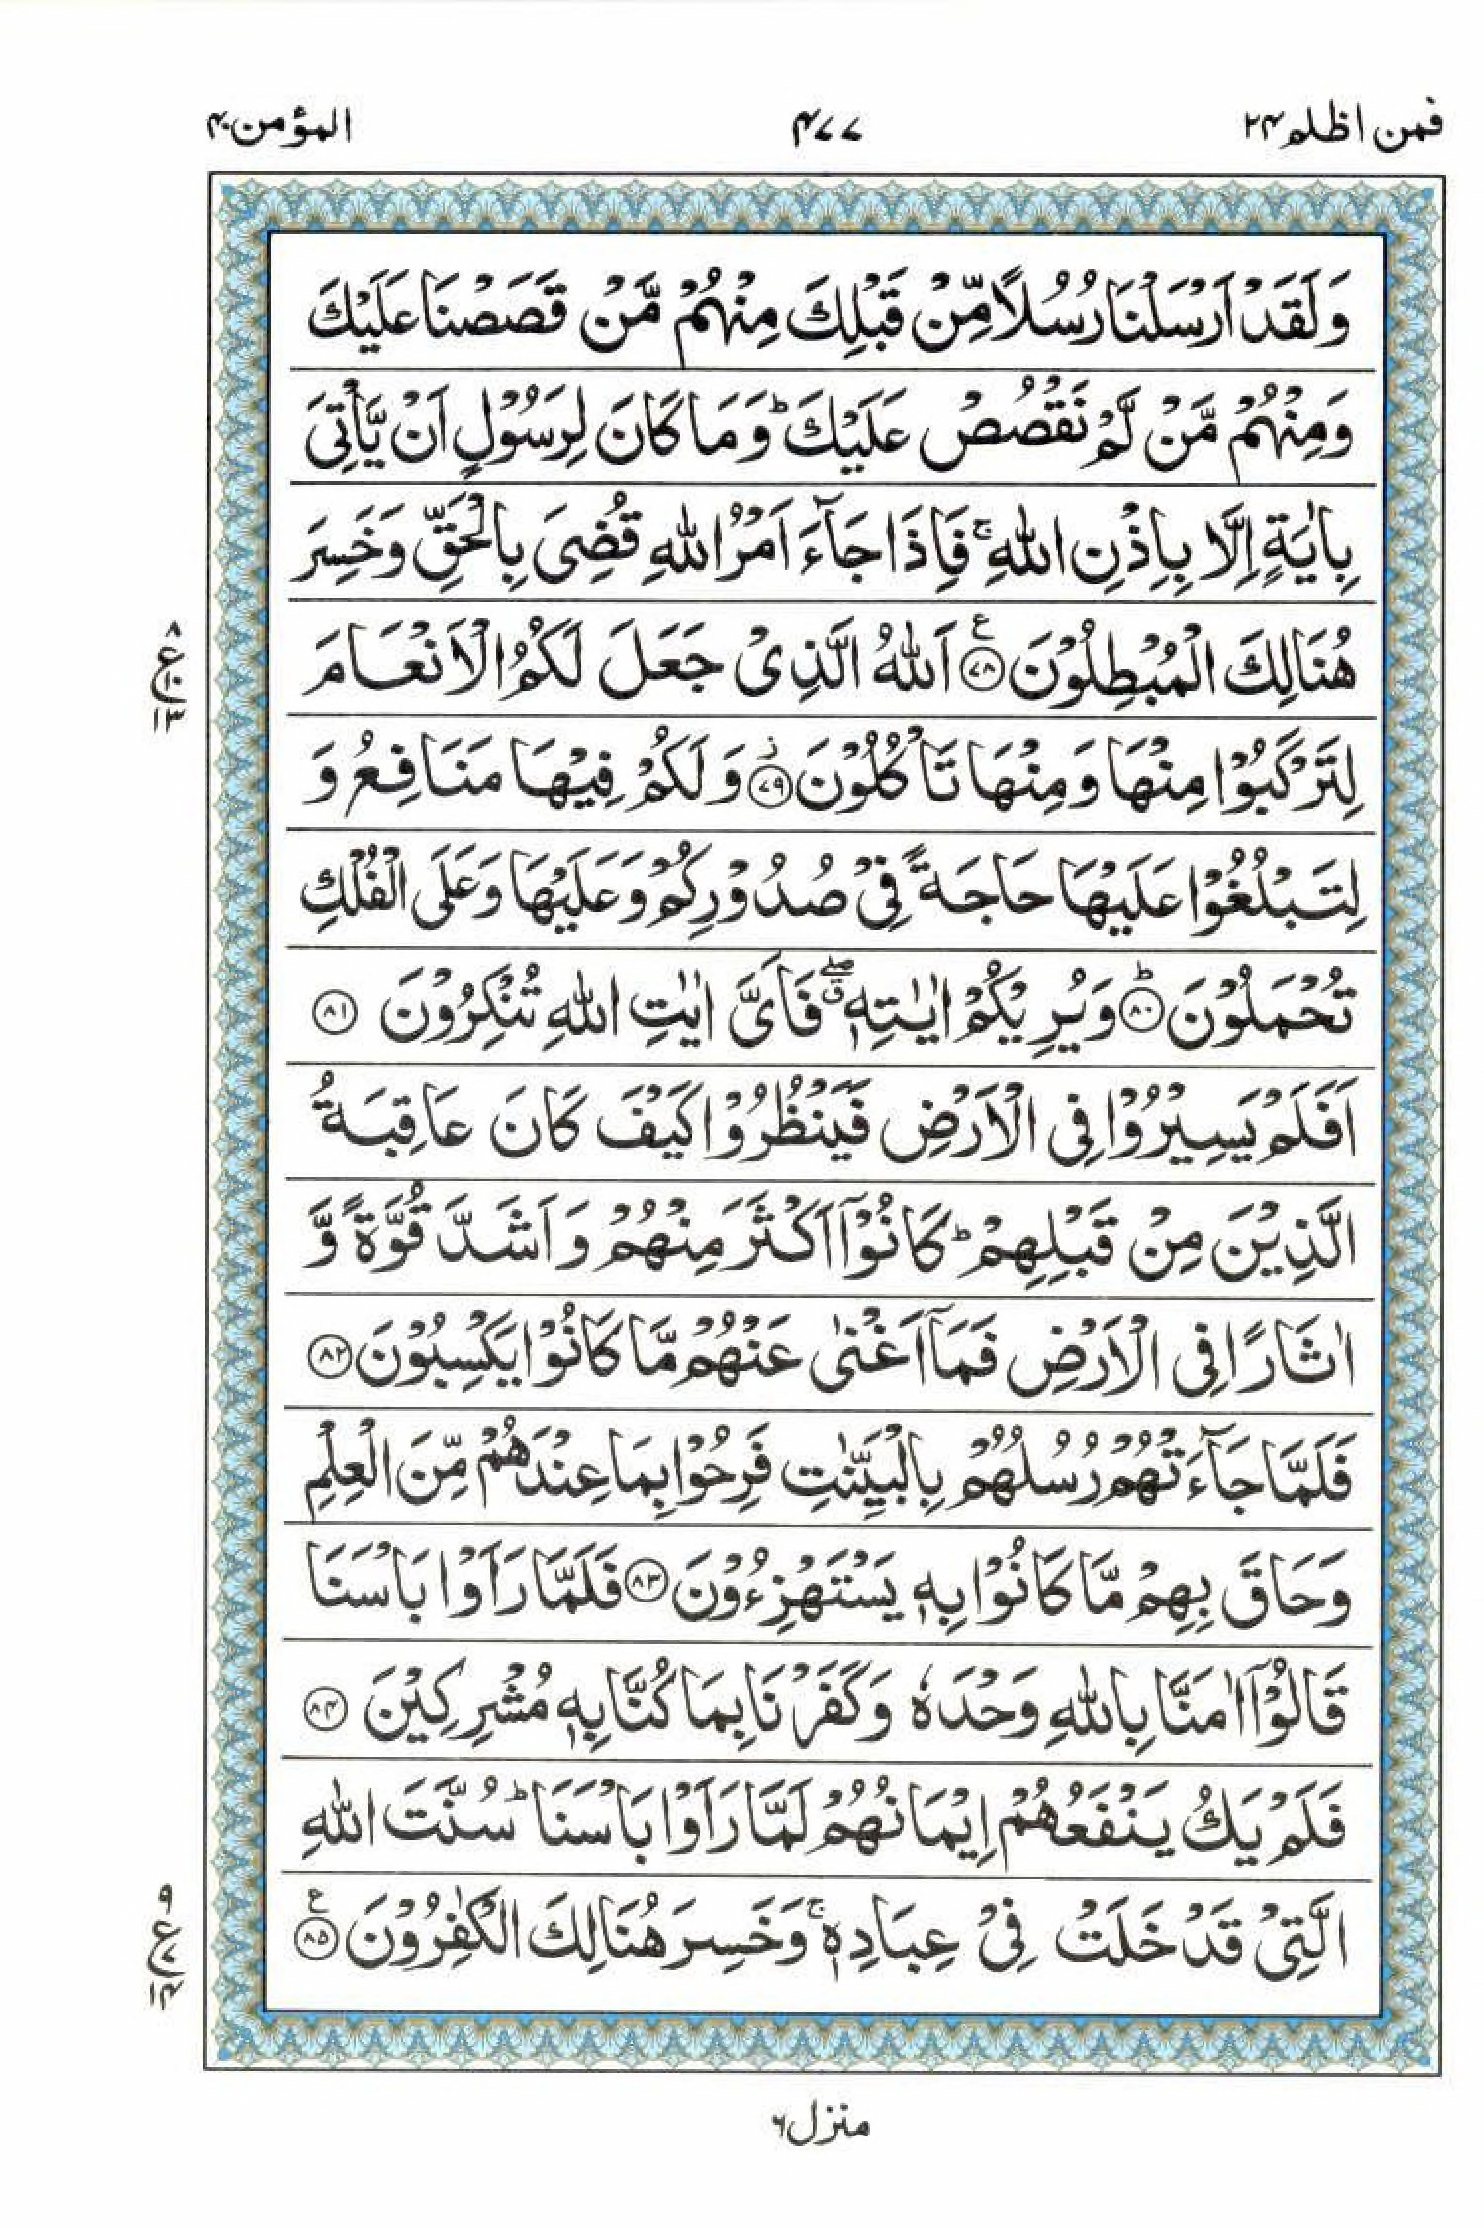 فمن اظلم ۲۴
۴۷۷
المؤمن ۴۰
وَلَقَدْ اَرْسَلْنَا رُسُلًا مِّنْ قَبْلِكَ مِنْهُمْ مَّنْ قَصَصْنَا عَلَيْكَ
وَمِنْهُمْ مَّنْ لَّمْ نَقْصُصْ عَلَيْكَ ؕ وَمَا كَانَ لِرَسُوْلٍ اَنْ يَّاْتِىَ
بِاٰيَةٍ اِلَّا بِاِذْنِ اللّٰهِ ۚ فَاِذَا جَآءَ اَمْرُ اللّٰهِ قُضِىَ بِالْحَقِّ وَخَسِرَ
هُنَالِكَ الْمُبْطِلُوْنَ ﴿۷۸﴾ ع اَللّٰهُ الَّذِىْ جَعَلَ لَكُمُ الْاَنْعَامَ
لِتَرْكَبُوْا مِنْهَا وَمِنْهَا تَاْكُلُوْنَ ﴿۷۹﴾ ز وَلَكُمْ فِيْهَا مَنَافِعُ وَ
لِتَبْلُغُوْا عَلَيْهَا حَاجَةً فِىْ صُدُوْرِكُمْ وَعَلَيْهَا وَعَلَى الْفُلْكِ
تُحْمَلُوْنَ ﴿۸۰﴾ ؕ وَيُرِيْكُمْ اٰيٰتِهٖ ۖق فَاَىَّ اٰيٰتِ اللّٰهِ تُنْكِرُوْنَ ﴿۸۱﴾
اَفَلَمْ يَسِيْرُوْا فِى الْاَرْضِ فَيَنْظُرُوْا كَيْفَ كَانَ عَاقِبَةُ
الَّذِيْنَ مِنْ قَبْلِهِمْ ؕ كَانُوْۤا اَكْثَرَ مِنْهُمْ وَاَشَدَّ قُوَّةً وَّ
اٰثَارًا فِى الْاَرْضِ فَمَاۤ اَغْنٰى عَنْهُمْ مَّا كَانُوْا يَكْسِبُوْنَ ﴿۸۲﴾
فَلَمَّا جَآءَتْهُمْ رُسُلُهُمْ بِالْبَيِّنٰتِ فَرِحُوْا بِمَا عِنْدَهُمْ مِّنَ الْعِلْمِ
وَحَاقَ بِهِمْ مَّا كَانُوْا بِهٖ يَسْتَهْزِءُوْنَ ﴿۸۳﴾ فَلَمَّا رَاَوْا بَاْسَنَا
قَالُوْۤا اٰمَنَّا بِاللّٰهِ وَحْدَهٗ وَكَفَرْنَا بِمَا كُنَّا بِهٖ مُشْرِكِيْنَ ﴿۸۴﴾
فَلَمْ يَكُ يَنْفَعُهُمْ اِيْمَانُهُمْ لَمَّا رَاَوْا بَاْسَنَا ؕ سُنَّتَ اللّٰهِ
الَّتِىْ قَدْ خَلَتْ فِىْ عِبَادِهٖ ۚ وَخَسِرَ هُنَالِكَ الْكٰفِرُوْنَ ﴿۸۵﴾ ع
۸
ع ۱۰
۱۳
۹
ع ۷
۱۴
منزل ۶